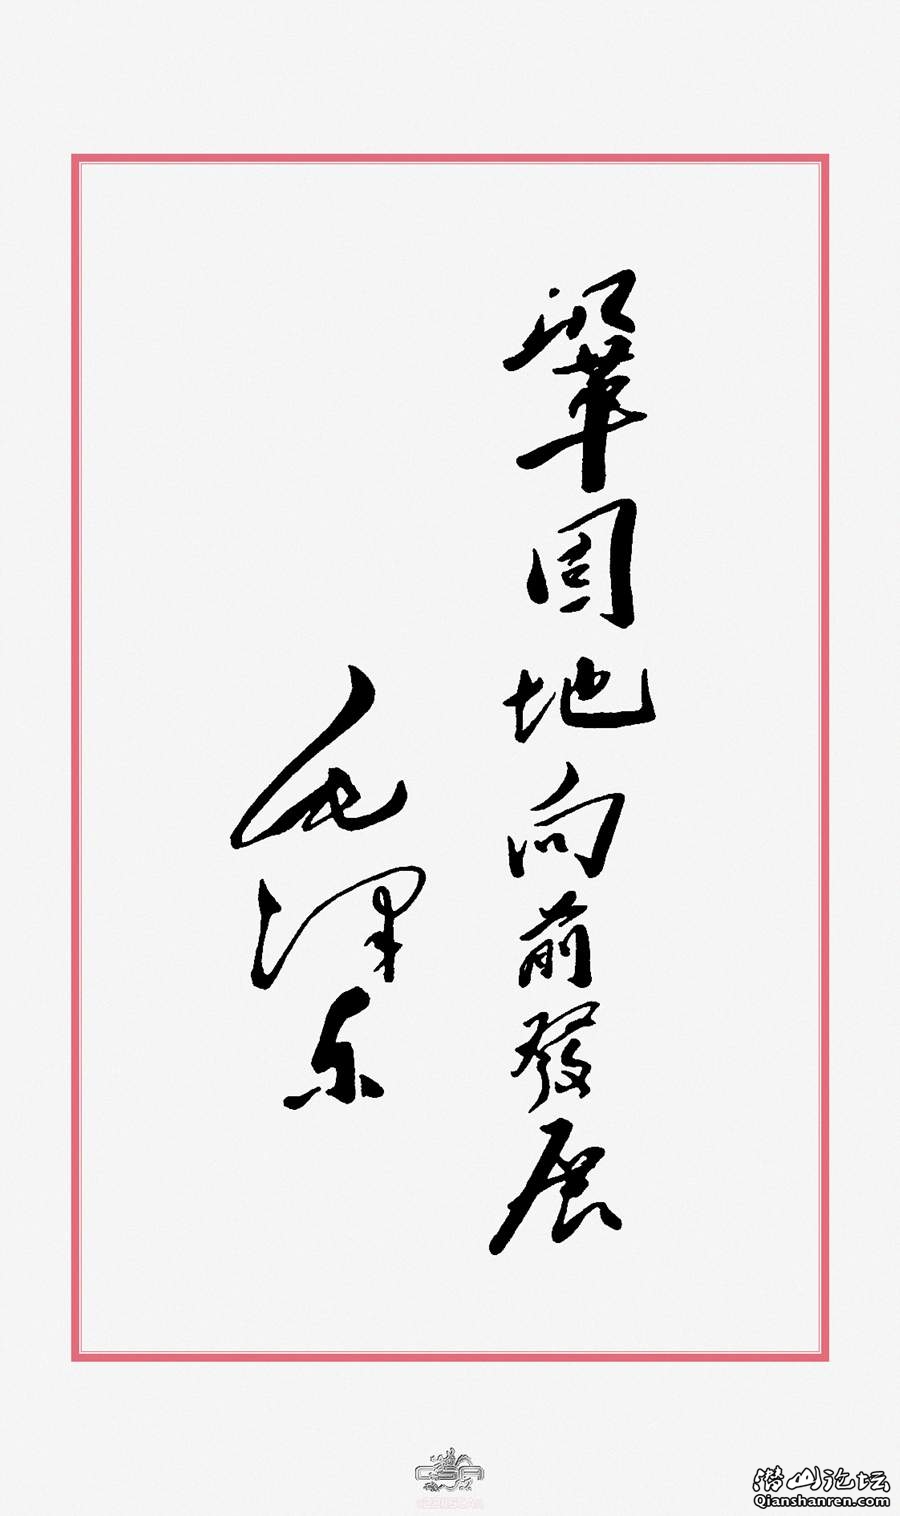 鞏固地向前發展
毛澤东
潜山论坛
Qianshanren.com